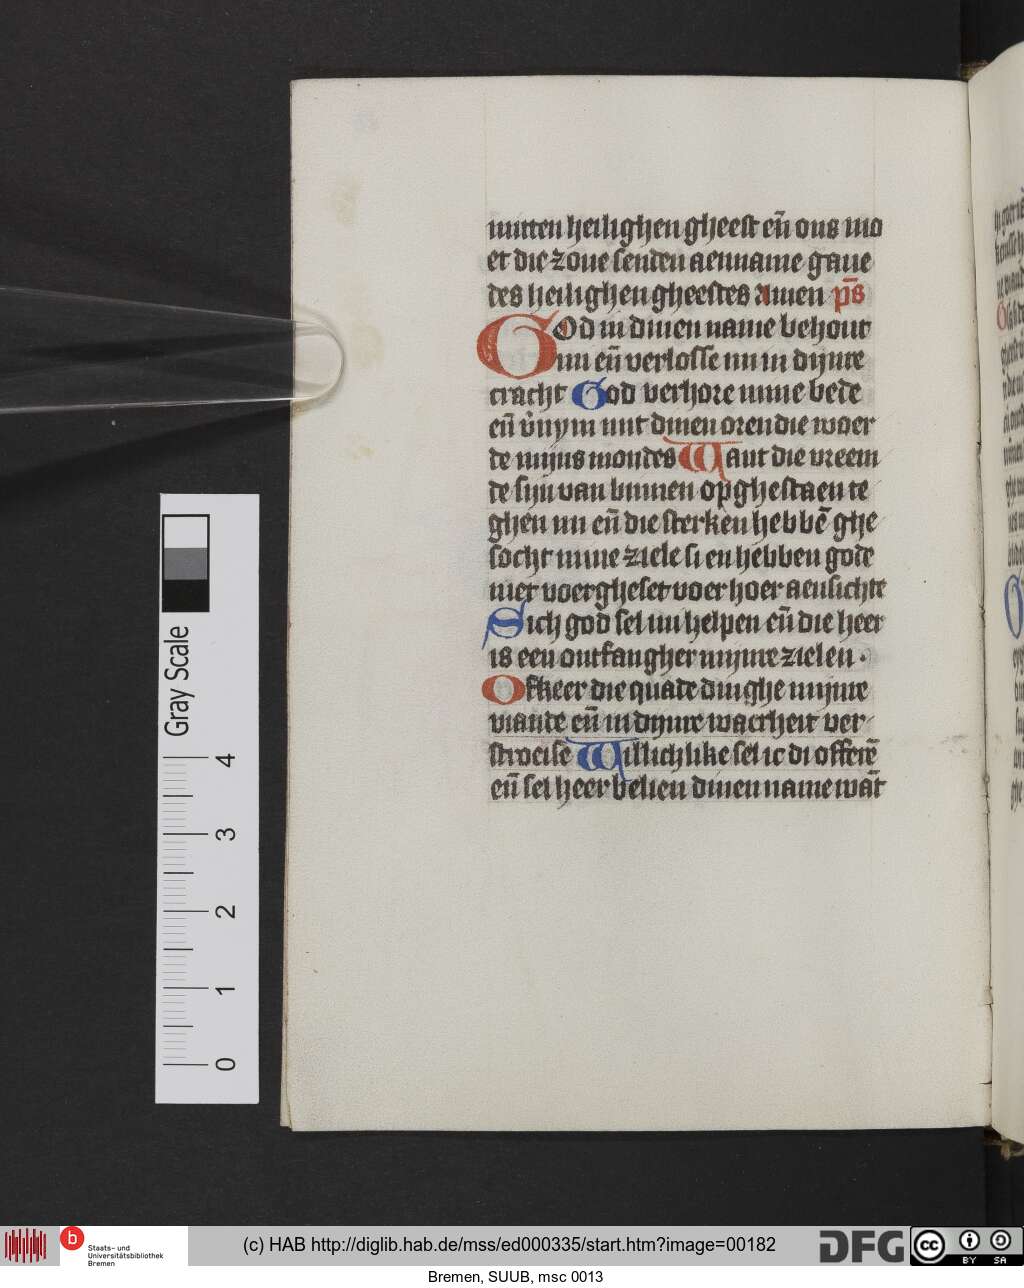 mitten heilighen gheest eñ ons mo
et die zone senden aenname gaue
des heilighen gheestes Amen p̄s
God in dinen name behout
mi eñ verlosse mi in dijnre
cracht God verhore mine bede
eñ v̾nym mit dinen oren die woer
de mijns mondes Want die vreem
de sijn van binnen opghestaen te
ghen mi eñ die sterken hebbē ghe
socht mine ziele si en hebben gode
niet voergheset voer hoer aensichte
Sich god sel mi helpen eñ die heer
is een ontfangher mijnre zielen ·
Ofkeer die quade dinghe mijnre
viande eñ in dijnre waerheit ver
stroeise Willichlike sel ic di offerē
eñ sel heer belien dinen name wāt
Gray Scale
4
3
2
1
0
b
Staats- und
Universitätsbibliothek
Bremen
(c) HAB http://diglib.hab.de/mss/ed000335/start.htm?image=00182
DFG
cc
BY SA
Bremen, SUUB, msc 0013